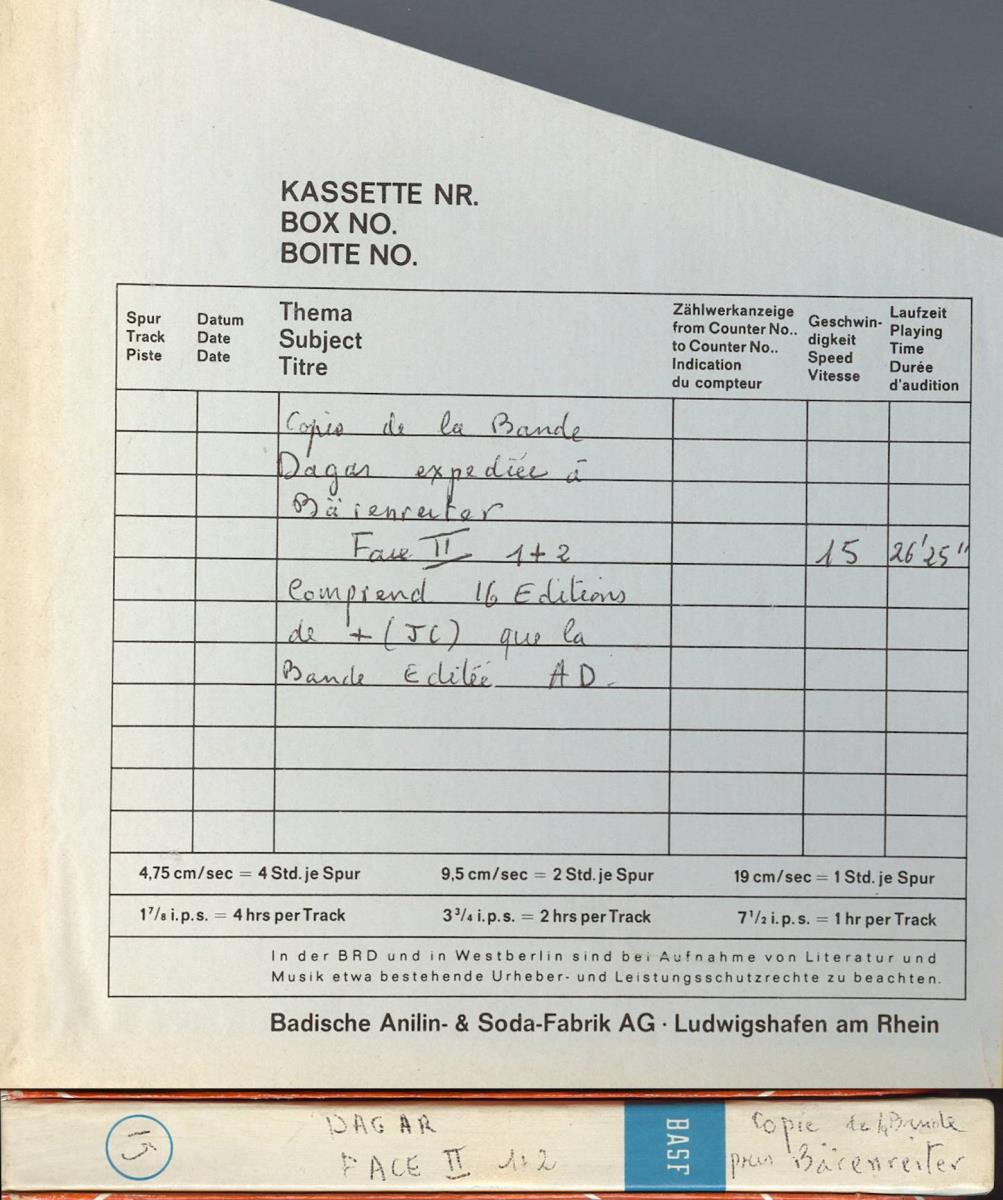 KASSETTE NR.
BOX NO.
BOITE NO.
Spur
Track
Piste
Datum
Date
Date
Thema
Subject
Titre
Zählwerkanzeige
from Counter No..
to Counter No..
Indication
du compteur
Geschwin-
digkeit
Speed
Vitesse
Laufzeit
Playing
Time
Durée
d'audition
Copie de la Bande
Dagar expediée à
Bäienreiter
Face II 1+2 15 26'25"
Comprend 16 Editions
de + (JC) que la
Bande Editée AD.
4,75 cm/sec = 4 Std. je Spur 9,5 cm/sec = 2 Std. je Spur 19 cm/sec = 1 Std. je Spur
1 7/8 i.p.s. = 4 hrs per Track 3 3/4 i.p.s. = 2 hrs per Track 7 1/2 i.p.s. = 1 hr per Track
In der BRD und in Westberlin sind bei Aufnahme von Literatur und
Musik etwa bestehende Urheber- und Leistungsschutzrechte zu beachten.
Badische Anilin- & Soda-Fabrik AG · Ludwigshafen am Rhein
DAGAR
FACE II 1+2
BASF
Copie de la Bande
pour Bärenreiter